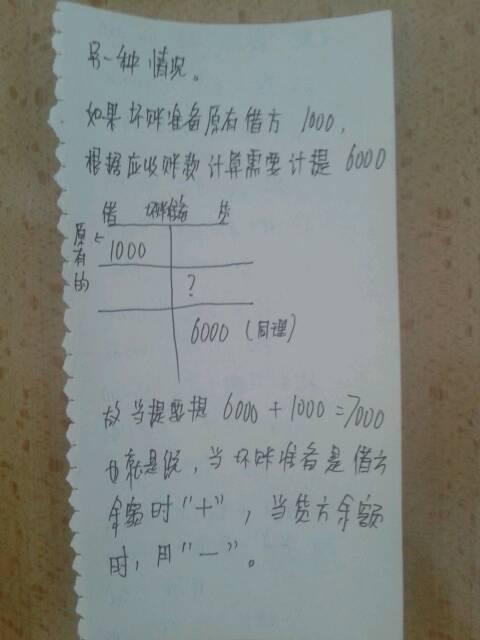 另一种情况。
如果坏账准备原有借方 1000,
根据应收账款计算需要计提 6000
借 坏账准备 贷
原有的 1000
?
6000 (同理)
故当提要提 6000+1000=7000
也就是说,当坏账准备是借方
余额时"+",当贷方余额
时,用"—"。